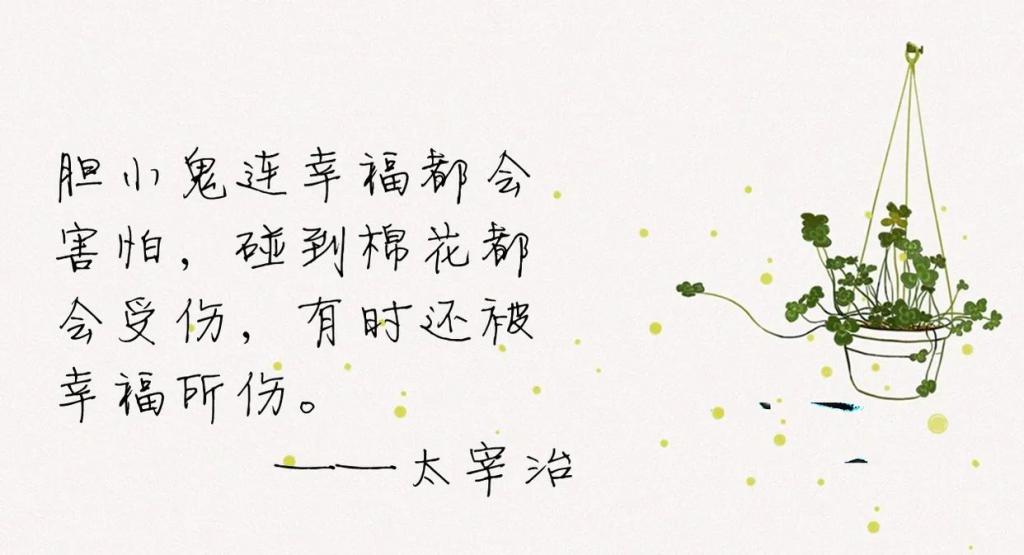 胆小鬼连幸福都会
害怕，碰到棉花都
会受伤，有时还被
幸福所伤。
——太宰治